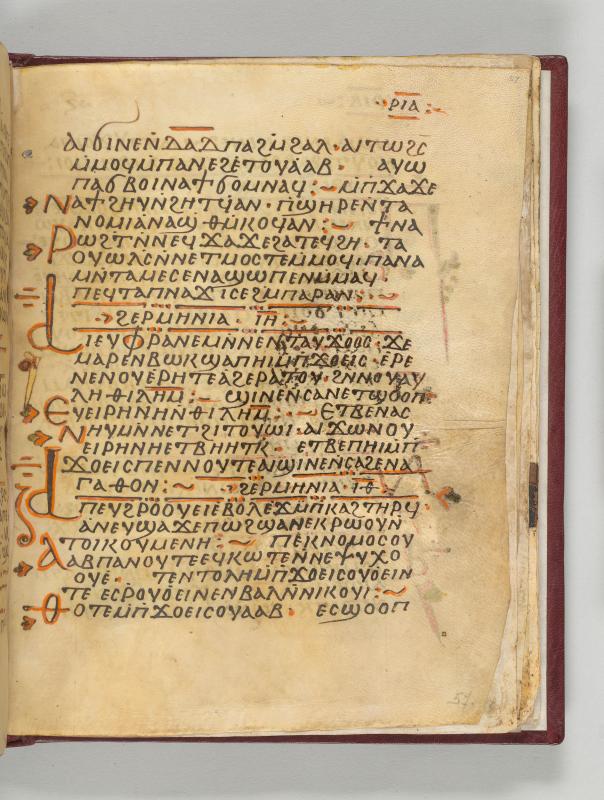 ⲣⲓⲁ
ⲁⲓϭⲓⲛⲉⲛⲇⲁⲇⲡⲁϩⲙϩⲁⲗ· ⲁⲓⲧⲱϩⲥ
ⲙⲙⲟϥⲙⲡⲁⲛⲉϩⲉⲧⲟⲩⲁⲁⲃ· ⲁⲩⲱ
ⲡⲁϭⲃⲟⲓⲛⲁϯϭⲟⲙⲛⲁϥ: ⲙⲡϫⲁϫⲉ
ⲛⲁϯϩⲏⲩⲛϩⲏⲧϥⲁⲛ· ⲡϣⲏⲣⲉⲛⲧⲁ
ⲛⲟⲙⲓⲁⲛⲁϣⲑⲙⲕⲟϥⲁⲛ: ϯⲛⲁ
ⲣⲱϩⲧⲛⲛⲉϥϫⲁϫⲉϩⲁⲧⲉϥϩⲏ· ⲧⲁ
ⲟⲩⲱⲗⲥⲛⲛⲉⲧⲙⲟⲥⲧⲉⲙⲙⲟϥ· ⲡⲁⲛⲁ
ⲙⲛⲧⲁⲙⲉⲥⲉⲛⲁϣⲱⲡⲉⲛⲙⲙⲁϥ·
ⲡⲉϥⲧⲁⲡⲛⲁϫⲓⲥⲉϩⲙⲡⲁⲣⲁⲛ:
ϩⲉⲣⲙⲏⲛⲓⲁ ⲓⲏ:
ⲁⲓⲉⲩⲫⲣⲁⲛⲉⲙⲛⲛⲉⲛⲧⲁⲩϫⲟⲟⲥ ϫⲉ
ⲙⲁⲣⲉⲛⲃⲱⲕϣⲁⲡⲏⲓⲙⲡϫⲟⲉⲓⲥ· ⲉⲣⲉ
ⲛⲉⲛⲟⲩⲉⲣⲏⲧⲉⲁϩⲉⲣⲁⲧⲟⲩ· ϩⲛⲛⲟⲩⲁⲩ
ⲗⲏⲑⲓⲗⲏⲙ: ϣⲓⲛⲉⲛⲥⲁⲛⲉⲧϣⲟⲟⲡ
ⲉⲩⲉⲓⲣⲏⲛⲏⲛⲑⲓⲗⲏⲙ: ⲉⲧⲃⲉⲛⲁⲥ
ⲛⲏⲩⲙⲛⲛⲉⲧϩⲓⲧⲟⲩⲱⲓ· ⲁⲓϫⲱⲛⲟⲩ
ⲉⲓⲣⲏⲛⲏⲉⲧⲃⲏⲏⲧⲕ· ⲉⲧⲃⲉⲡⲏⲓⲙⲡ
ϫⲟⲉⲓⲥⲡⲉⲛⲛⲟⲩⲧⲉⲁⲓϣⲓⲛⲉⲛⲥⲁϩⲉⲛⲁ
ⲅⲁⲑⲟⲛ: ϩⲉⲣⲙⲏⲛⲓⲁ· ⲓⲑ·
ⲁⲡⲉⲩϩⲣⲟⲟⲩⲉⲓⲉⲃⲟⲗⲉϫⲙⲡⲕⲁϩⲧⲏⲣϥ
ⲁⲛⲉⲩϣⲁϫⲉⲡⲱϩϣⲁⲛⲉⲕⲣⲱⲟⲩⲛ
ⲧⲟⲓⲕⲟⲩⲙⲉⲛⲏ: ⲡⲉⲕⲛⲟⲙⲟⲥⲟⲩ
ⲁⲁⲃⲡⲁⲛⲟⲩⲧⲉⲉϥⲕⲱⲧⲉⲛⲛⲉⲯⲩⲭⲟ
ⲟⲩⲉ· ⲧⲉⲛⲧⲟⲗⲏⲙⲡϫⲟⲉⲓⲥⲟⲩⲟⲉⲓⲛ
ⲧⲉ ⲉⲥⲣⲟⲩⲟⲉⲓⲛⲉⲛⲃⲁⲗⲛⲛⲓⲕⲟⲩⲓ:
ⲑⲟⲧⲉⲙⲡϫⲟⲉⲓⲥⲟⲩⲁⲁⲃ· ⲉⲥϣⲟⲟⲡ
57.